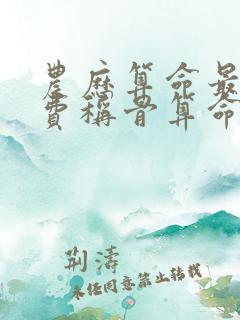 農历算命最
費稱骨算命
荆濤
未经同意禁止转载